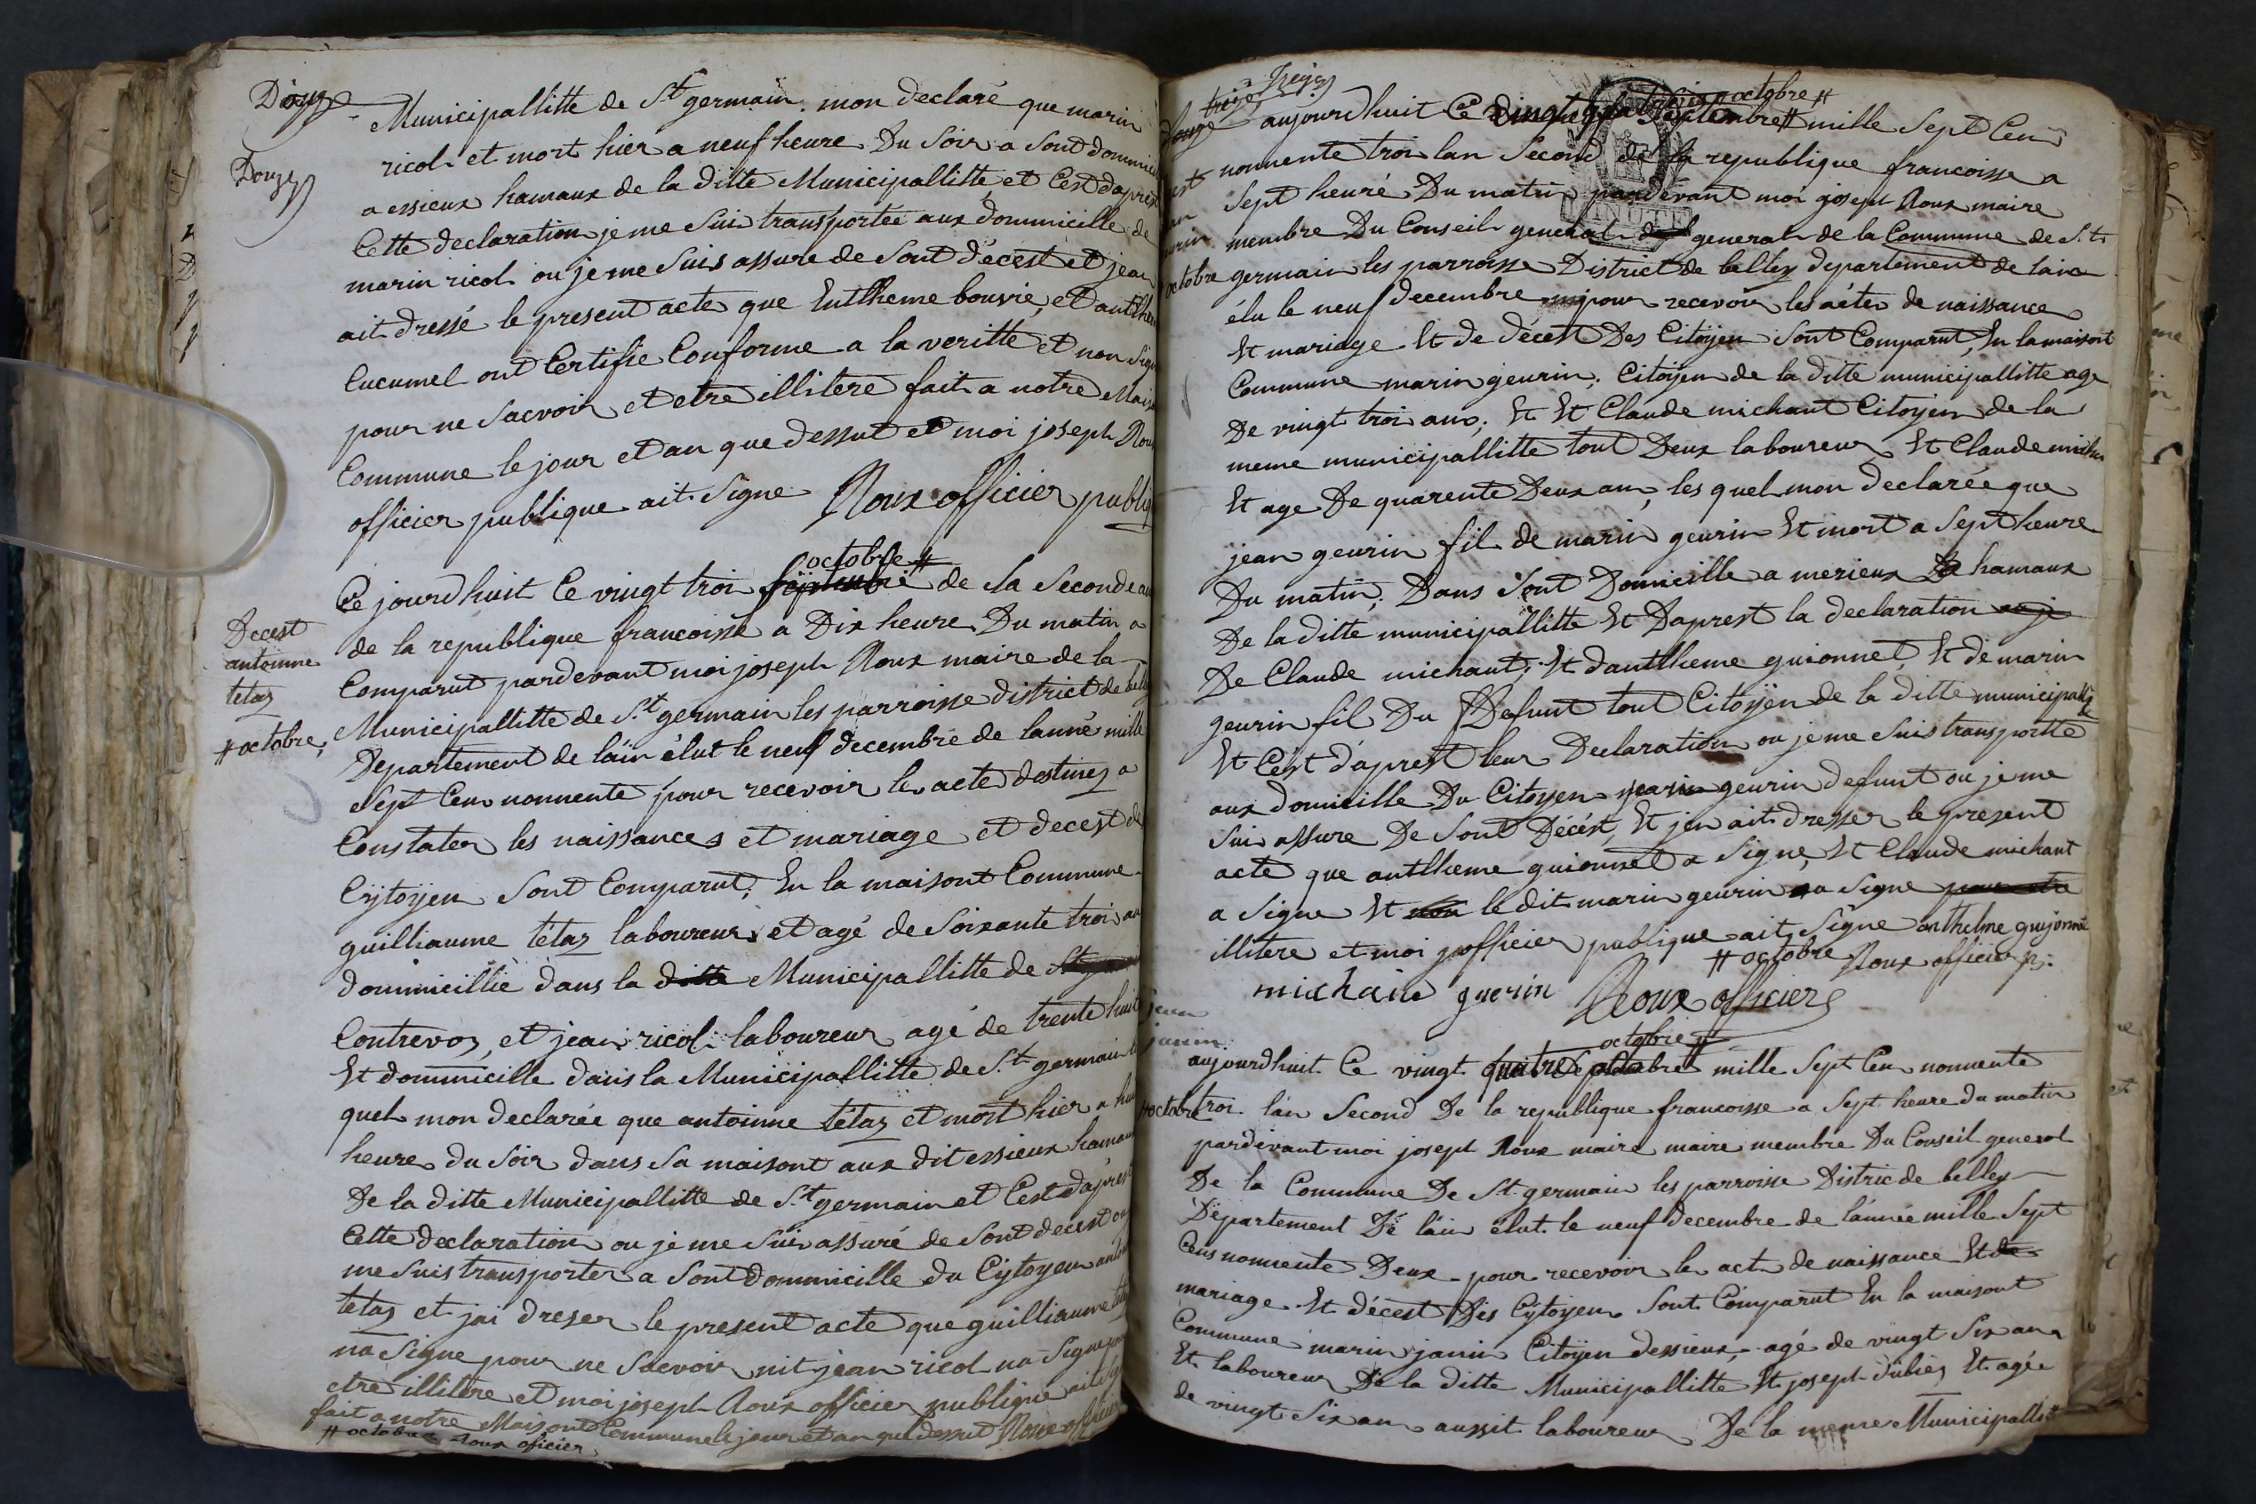 Douze
Municipallitte de St germain mon declaré que marin
Douze
ricol et mort hier a neuf heure Du Soir a Sont dommici
a essieux hamaux de la ditte Municipallitte et Cest daprest
Cette declaration je me Suis transportée aux dommicille de
marin ricol ou je me Suis assure de Sont décest et jean
ait dressé le present acte que Enthheme bouvie, et antthe
Cucumel ont Certifie Conforme a la veritte et non Sign
pour ne Sacvoir et etre illitere fait a notre Mais
Commune le jour et an que dessut et moi joseph Rou
officier publique ait Signe Roux officier publiq
octobre #
Ce jourdhuit Ce vingt troi Septembre de la Seconde an
de la republique francoisse a Dix heure Du matin a
Decest
antoinne
tetaz
# octobre,
Comparut pardevant moi joseph Roux maire de la
Municipallitte de St germain les parroisse district de bell
Departement de láin élut le neuf decembre de lanné mille
Sept Cen nonnente pour recevoir le acte destinez a
Constater les naissances et mariage et decest de
Cÿtoÿen Sont Comparut, En la maisont Commune
guilliaume tétaz laboureur et agé de Soixante troi an
dommicillié dans la ditte Municipallitte de St
Contrevoz, et jean ricol laboureur agé de trente huit
Et dommicille dans la Municipallitté de St germain
quel mon declarée que antoinne tétaz et mort hier a hui
heure du Soir dans Sa maisont aux dit essieux hamau
De la ditte Municipallitte de St germain et Cest dáprest
Cette declaration ou je me Suis assuré de Sont decest ou
me Suis transporter a Sont dommicille du Cÿtoyen anto
tetaz et jai dreser le present acte que guilliaume teta
na Signe pour ne Sacvoir nit jean ricol na Signe pour
etre illitere et moi joseph Roux officier publique ait Sig
fait a notre Maisont Commune le jour et an que dessut Roux officier
# octobre Roux oficier
treize
octobre #
aujourdhuit Ce vingt quatre Septembre # mille Sept Cen
nonnente troi lan Second de la republique francoisse a
Sept heuré Du matin pardevant moi josept Roux maire
membre Du Conseil general de general de la Commune de St
octobre germain les parroisse District de belley departement de lain
élu le neuf decembre pour recevoir les aéter de naissance
Et mariage Et de décest Des Citoÿen Sont Comparut, En la maisont
Commune marin geurin, Citoÿen de la ditte municipallitte age
De vingt troi ans, Et Et Claude michaut Citoÿen de la
meme municipallitte tout Deux laboureur Et Claude michau
Et age De quarente Deux an, les quel mon declarée que
jean geurin fil de marin geurin Et mort a Sept heure
Du matin, Dans Sont Domicille a merieux Da hamaux
De la ditte municipallitte Et Daprest la declaration ou je
De Claude michaut, Et dantlheme guionnet, Et de marin
geurin fil Du Defunt tout Citoÿen de la ditte municipallit
Et Cést d'áprest leur Declaration ou je me Suis transportté
aux domicille Du Citoyen marin geurin defunt ou je me
Suis assure De Sont Décést, Et jen ait dresser le present
acte que antlheme guionnet a Signe, Et Claude michaut
a Signe Et non le dit marin geurin a Signe pour etre
illitere et moi joofficier publique ait Signe anthelme guijonnet
# octobre Roux officier p.
michaud guerin Roux officier
octobre #
jean
janin
aujourdhuit Ce vingt quatre Septembre mille Sept Cen nonnente
# octobre troi lán Second De la republique francoisse a Sept heure du matin
pardevant moi josept Roux maire maire membre Du Conseil general
De la Commune De St germain les parroisse Distric de belley
Département Dé láin élut le neuf decembre de lánnée mille Sept
Cens nonnente Deux pour recevoir le act de naissance Et de
mariage Et décest Dés Cÿtoÿen Sont Comparut En la maisont
Commune marin janin Citoÿen dessieux, agé de vingt Six an
Et laboureur De la ditte Municipallitte Et josept dubiez Et agée
de vingt Six an aussit laboureur De la meme Municipallit